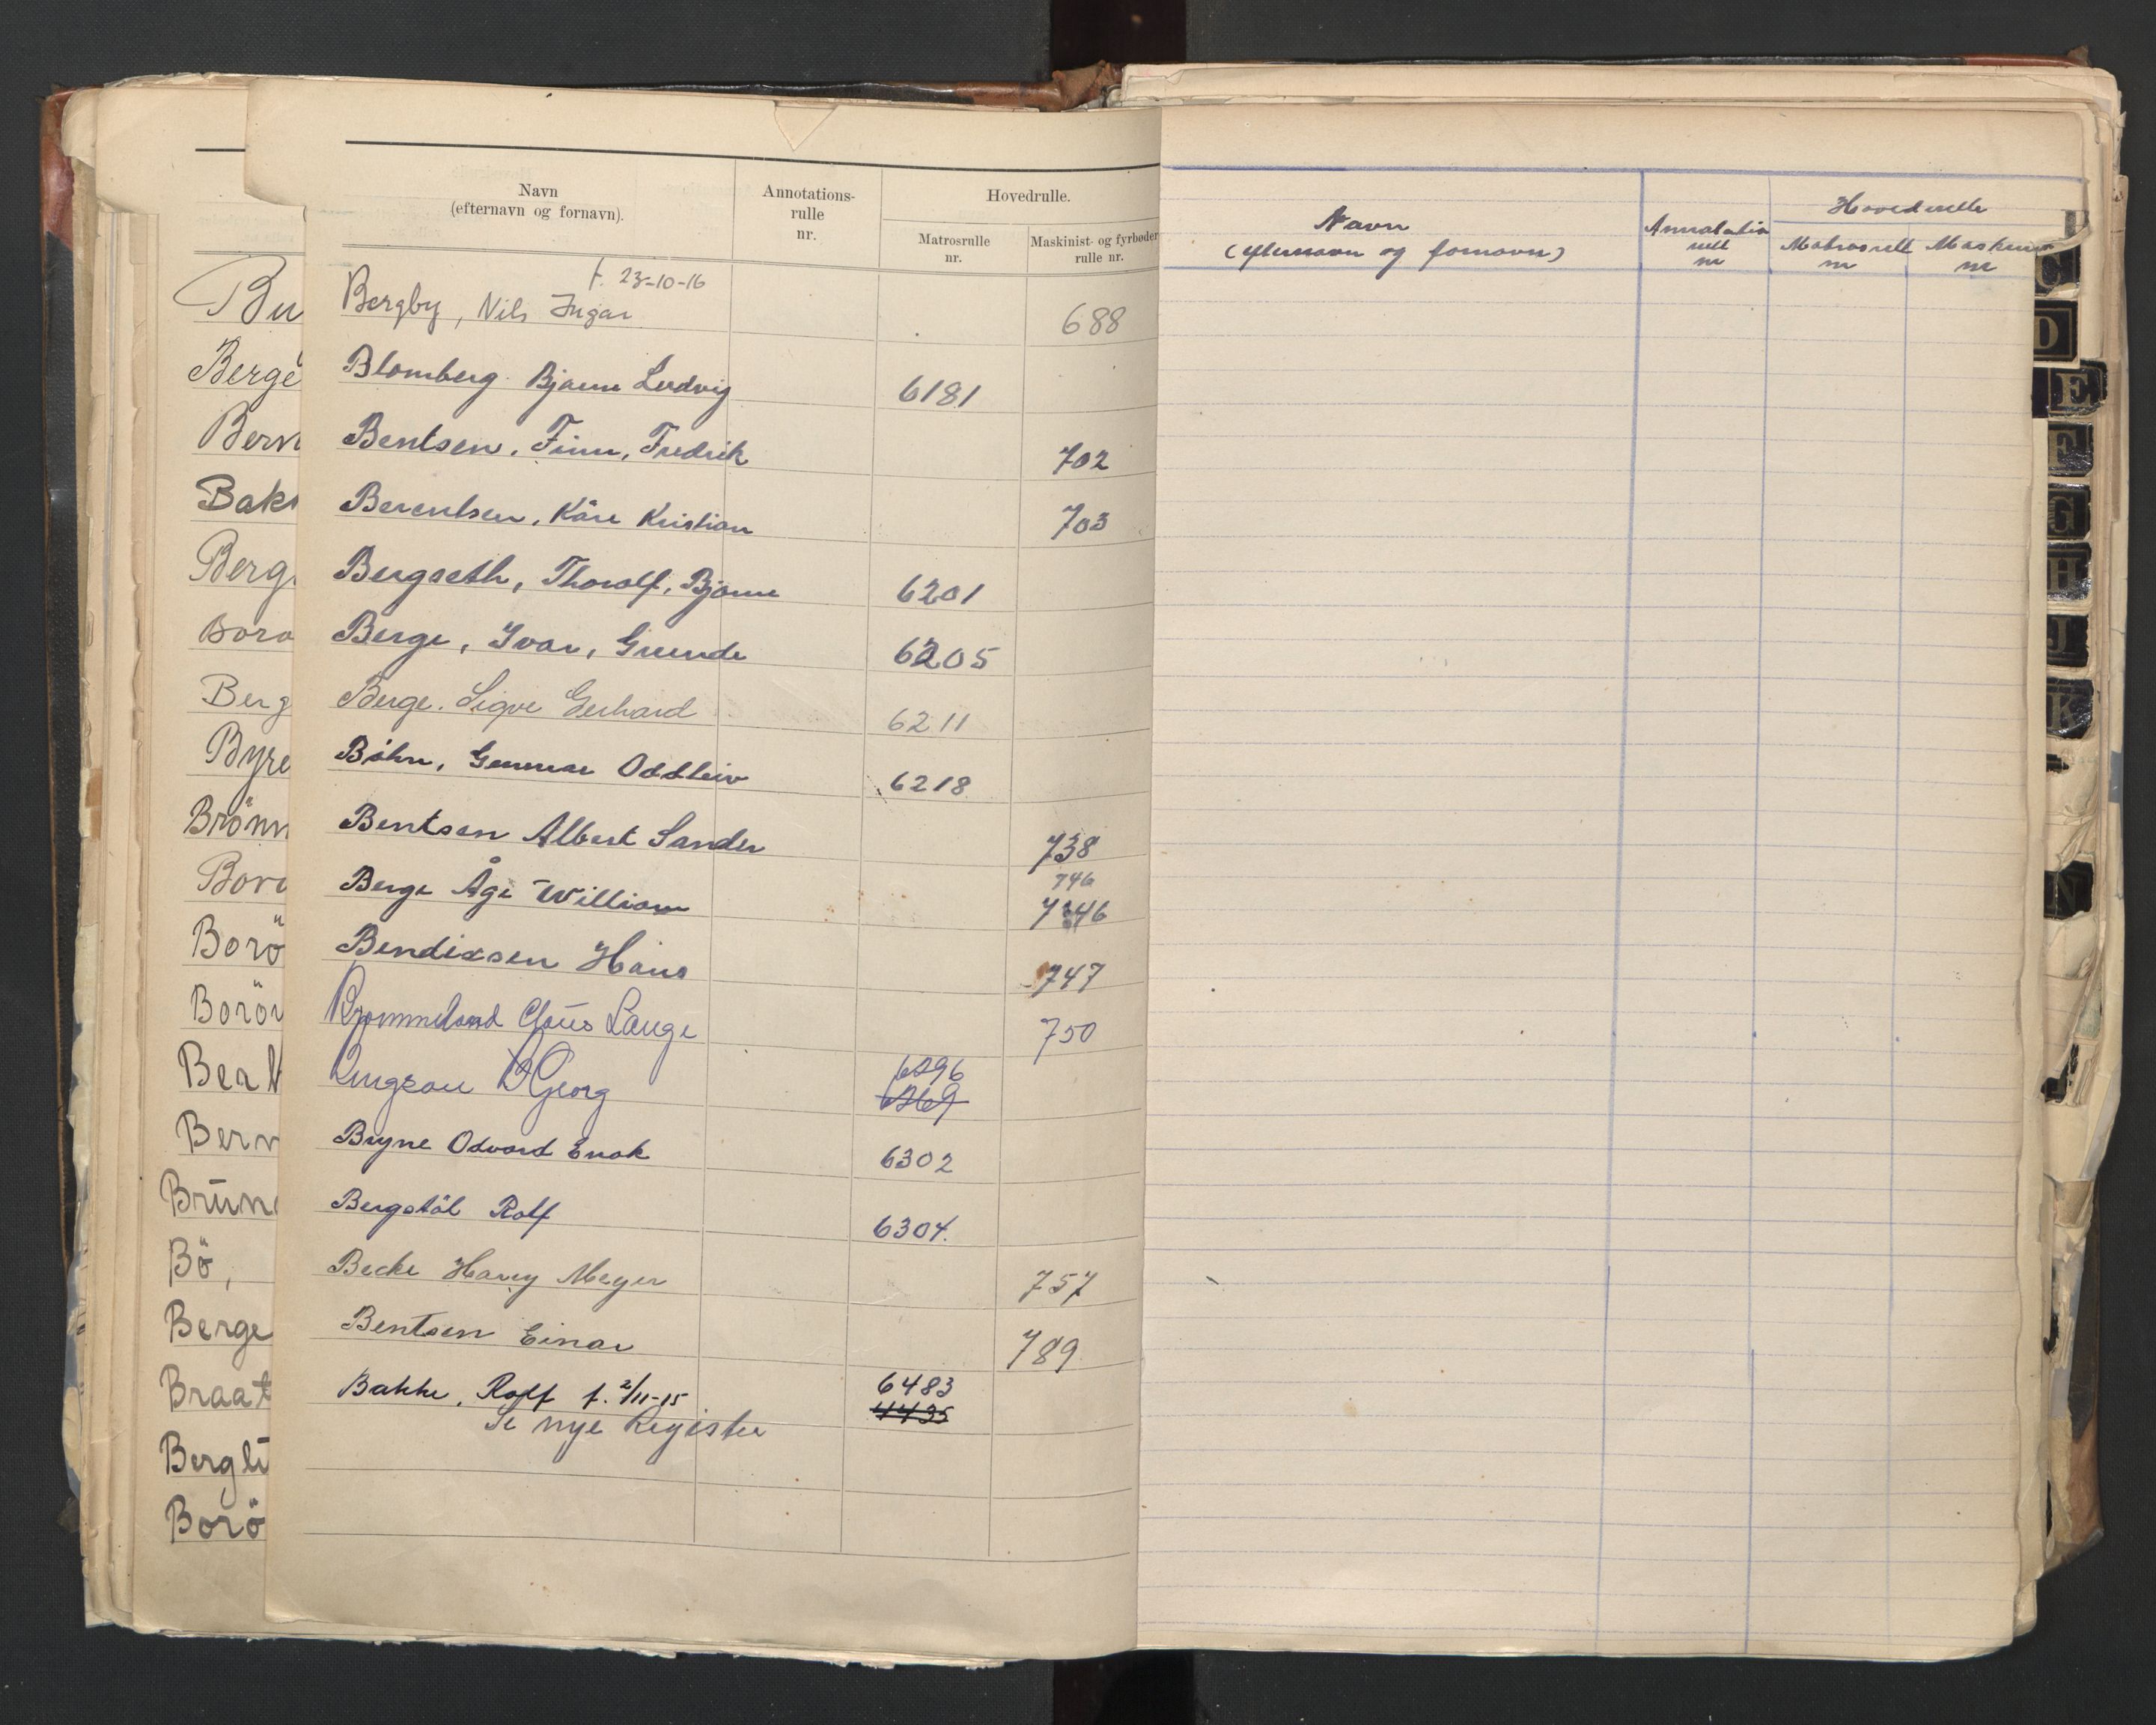 Navn
(efternavn og fornavn).
Annotations-
rulle
nr.
Hovedrulle.
Matrosrulle
nr.
Maskinist- og fyrbøder
rulle nr.
f. 23-10-16
Bergby, Nils Ingar 688
Blomberg Bjarne Ludvig 6181
Bentsen, Finn, Fredrik 702
Berentsen, Kåre Kristian 703
Bergseth, Thorolf, Bjarne 6201
Berge, Ivar, Gunde 6205
Berge. Sigve Gerhard 6211
Böhn, Gunnar Oddleiv 6218
Bentsen Albert Sander 738
746
Berge Åge William 746
Bendixsen Hans 747
Claus Lauge 750
6296
B Georg 6269
Bryne Odvard Enok 6302
Bergstöl Rolf 6304.
Becke Harry Meyer 757
Bentsen Einar 789
Bakke, Rolf f. 2/11-15 6483
4435
Se nye Register
Bu
Berge
Bern
Baks
Berg
Boro
Berg
Byre
Brönn
Boro
Borö
Borö
Ber
Bern
Brun
Bö,
Berge
Braat
Bergli
Borö
Navn
(efternavn og fornavn)
Annotation
rull
nr
Hovedrulle
Matrosrull
nr
Maskin
nr
C
D
E
F
G
H
J
K
N